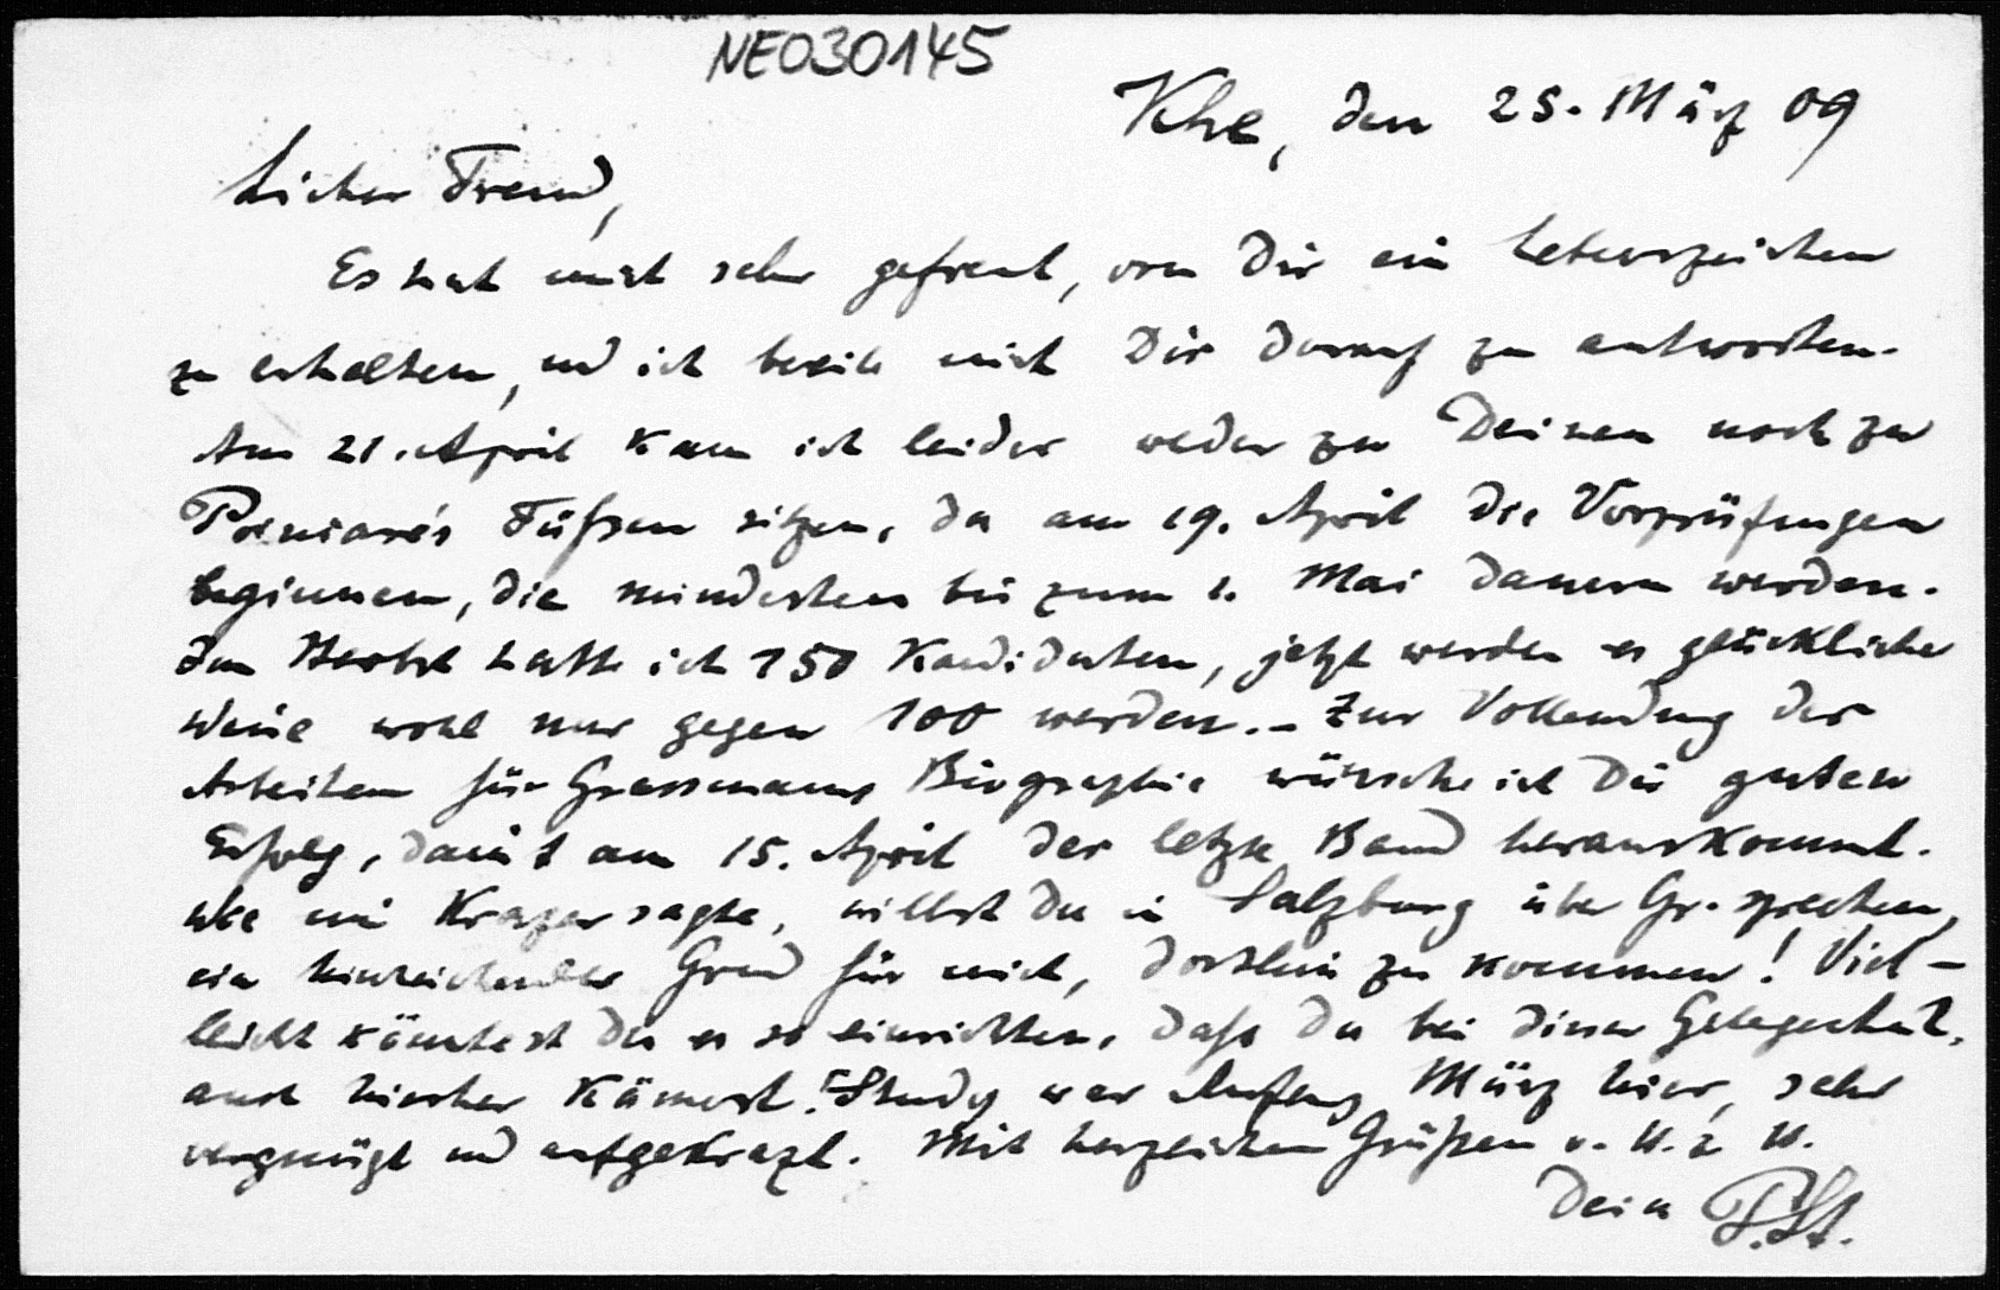 NE030145
Khe, den 25. März 09
Lieber Freund,
Es hat mich sehr gefreut, von Dir ein Lebenszeichen
zu erhalten, und ich beeile mich Dir darauf zu antworten.
Am 21. April kann ich leider weder zu Deinen noch zu
Poincaré's Füßen sitzen, da am 19. April die Vorprüfungen
beginnen, die mindestens bis zum 1. Mai dauern werden.
Im Herbst hatte ich 150 Kandidaten, jetzt werden es glücklicher
Weise wohl nur gegen 100 werden. – Zur Vollendung der
Arbeiten für Grassmanns Biographie wünsche ich Dir guten
Erfolg, damit am 15. April der letzte Band herauskommt.
Wie mir Krazer sagte, willst Du in Salzburg über Gr. sprechen,
ein hinreichender Grund für mich, dorthin zu kommen! Viel-
leicht könntest Du es so einrichten, daß Du bei dieser Gelegenheit,
auch hierher kämest. Study war Anfang März hier, sehr
vergnügt und aufgekrazt. Mit herzlichen Grüßen v. H. z. H.
Dein P. St.